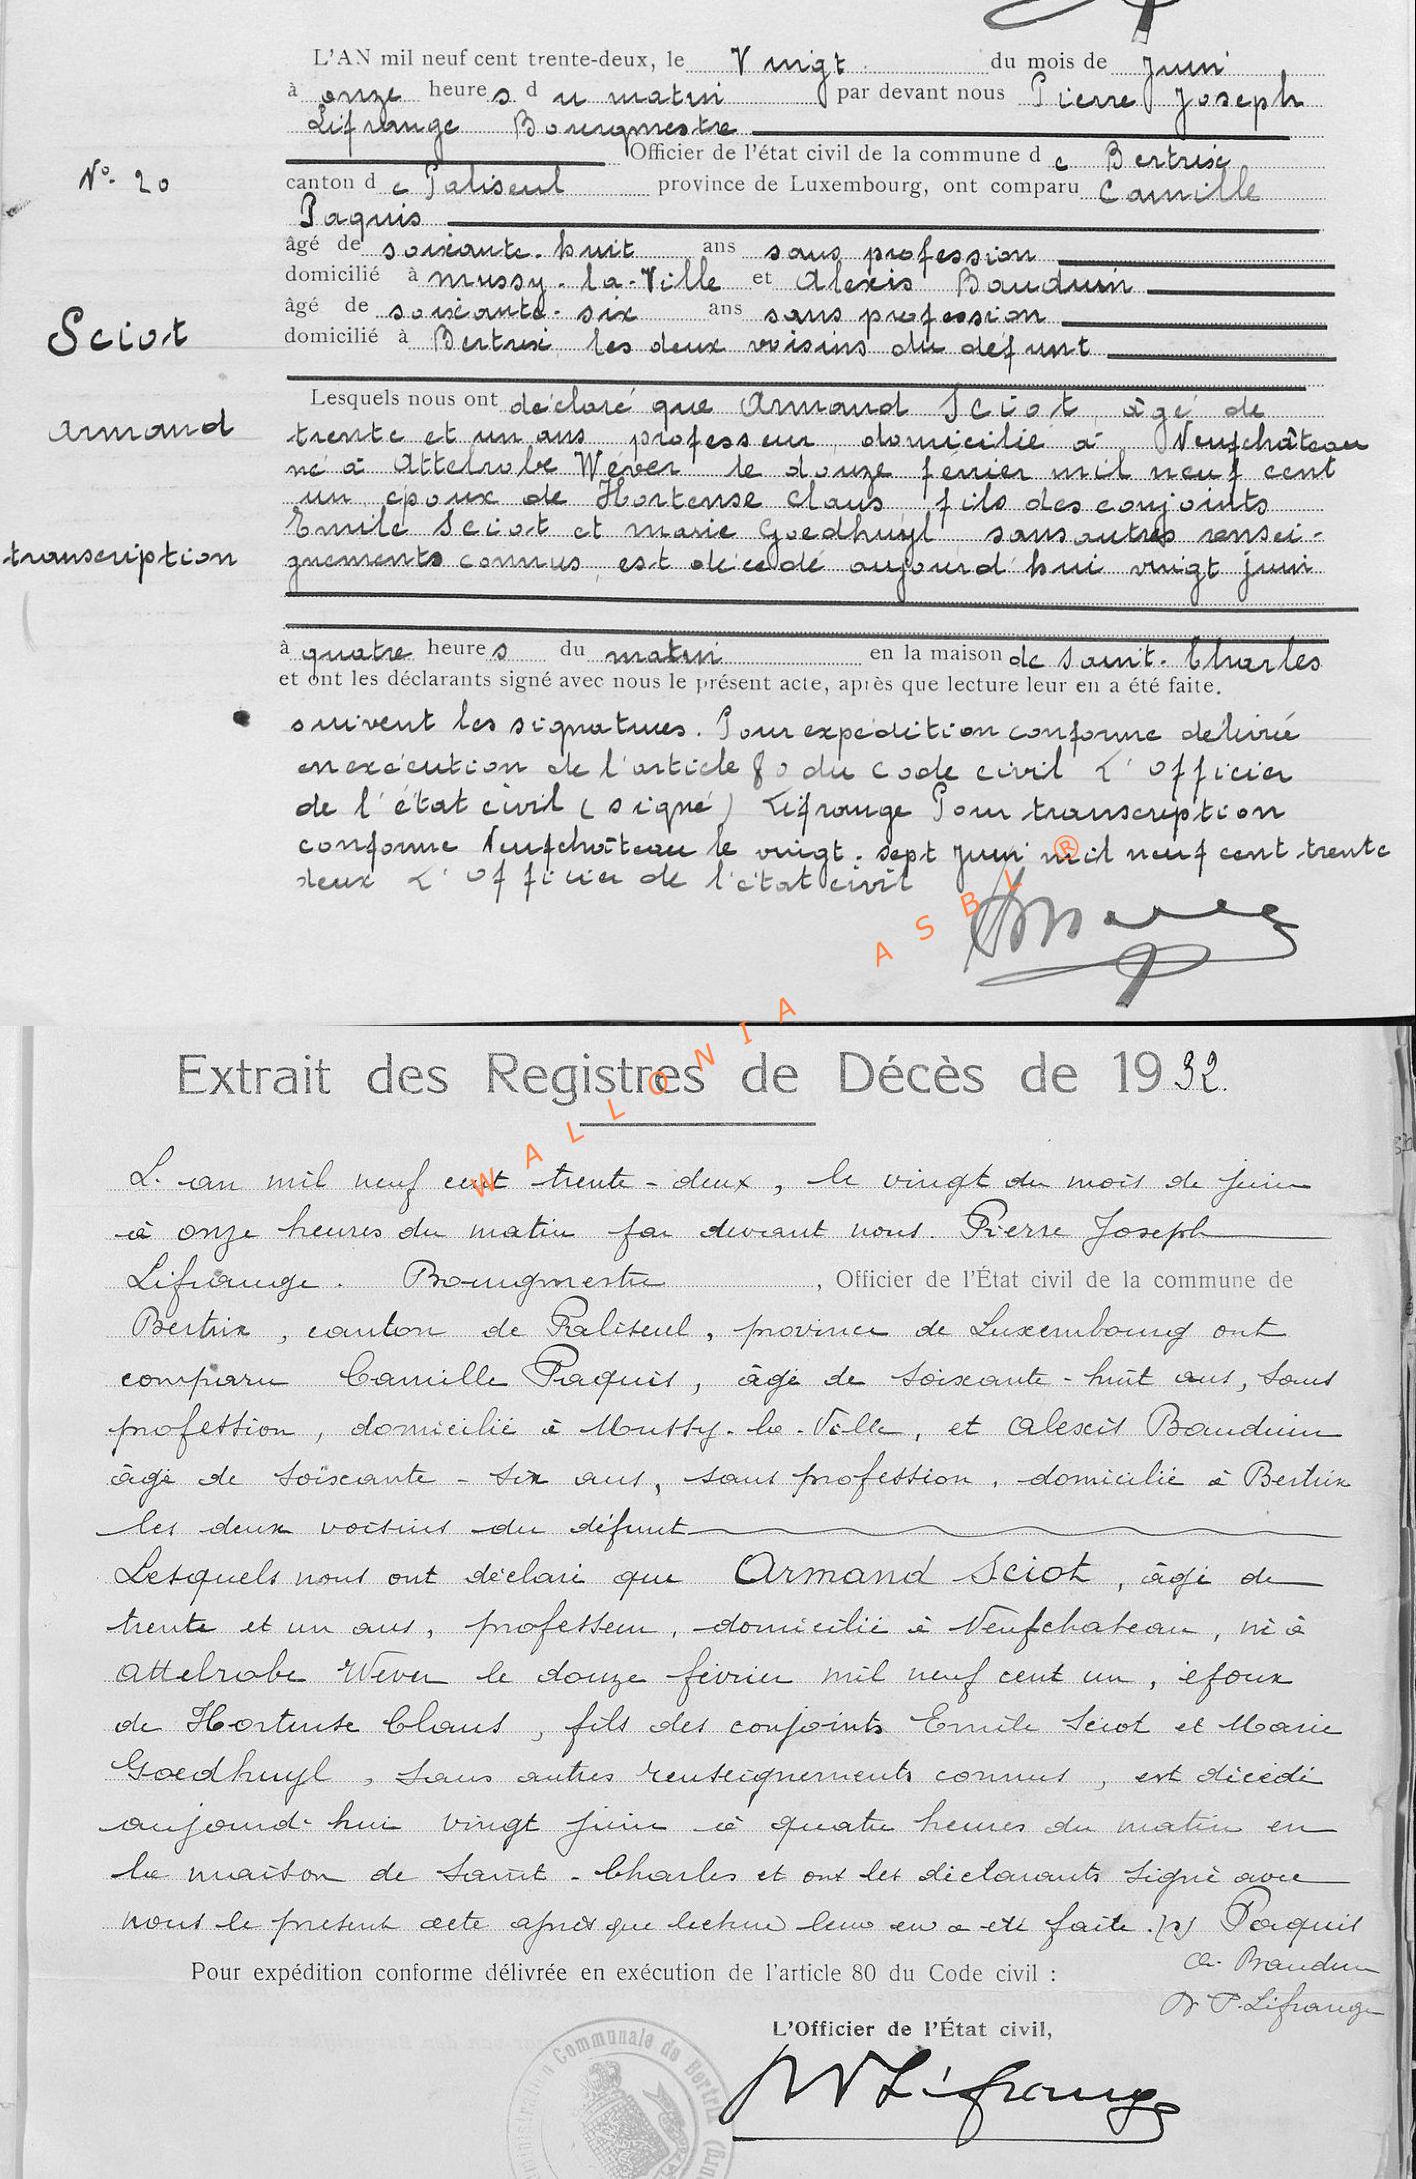 L'AN mil neuf cent trente-deux, le Vingt du mois de Juin
à onze heures du matin par devant nous Pierre Joseph
Lifrange Bourgmestre
Officier de l'état civil de la commune de Bertrix
N° 20
canton de Paliseul province de Luxembourg, ont comparu Camille
Paquis
âgé de soixante-huit ans sans profession
domicilié à Mussy-la-Ville et Alexis Bauduin
âgé de soixante-six ans sans profession
Sciot
domicilié à Bertrix, les deux voisins du défunt
Lesquels nous ont déclaré que Armand Sciot, âgé de
Armand
trente et un ans professeur domicilié à Neufchâteau
né à Attelrobe Wéver le douze février mil neuf cent
un époux de Hortense Claus fils des conjoints
Emile Sciot et Marie Goedhuyl sans autres rensei-
transcription
gnements connus, est décédé aujourd'hui vingt juin
à quatre heures du matin en la maison de Saint-Charles
et ont les déclarants signé avec nous le présent acte, après que lecture leur en a été faite.
suivent les signatures. Pour expédition conforme délivrée
en exécution de l'article 80 du code civil L'Officier
de l'état civil (signé) Lifrange Pour transcription
conforme Neufchâteau le vingt-sept juin mil neuf cent trente
deux L'Officier de l'état civil
WALLONIA ASBL ®
Extrait des Registres de Décès de 1932.
L'an mil neuf cent trente-deux, le vingt du mois de juin
à onze heures du matin par devant nous Pierre Joseph
Lifrange. Bourgmestre, Officier de l'État civil de la commune de
Bertrix, canton de Paliseul, province de Luxembourg ont
comparu Camille Paquis, âgé de soixante-huit ans, sans
profession, domicilié à Mussy-la-Ville, et Alexis Bauduin
âgé de soixante-six ans, sans profession, domicilié à Bertrix
les deux voisins du défunt
Lesquels nous ont déclaré que Armand Sciot, âgé de
trente et un ans, professeur, domicilié à Neufchateau, né à
Attelrobe Wever le douze février mil neuf cent un, époux
de Hortense Claus, fils des conjoints Emile Sciot et Marie
Goedhuyl, sans autres renseignements connus, est décédé
aujourd'hui vingt juin à quatre heures du matin en
la maison de Saint-Charles et ont les déclarants signé avec
nous le présent acte après que lecture leur en a été faite. (s) Paquis
Pour expédition conforme délivrée en exécution de l'article 80 du Code civil :
A. Bauduin
P. Lifrange
L'Officier de l'État civil,
Lifrange
Administration Communale de Bertrix